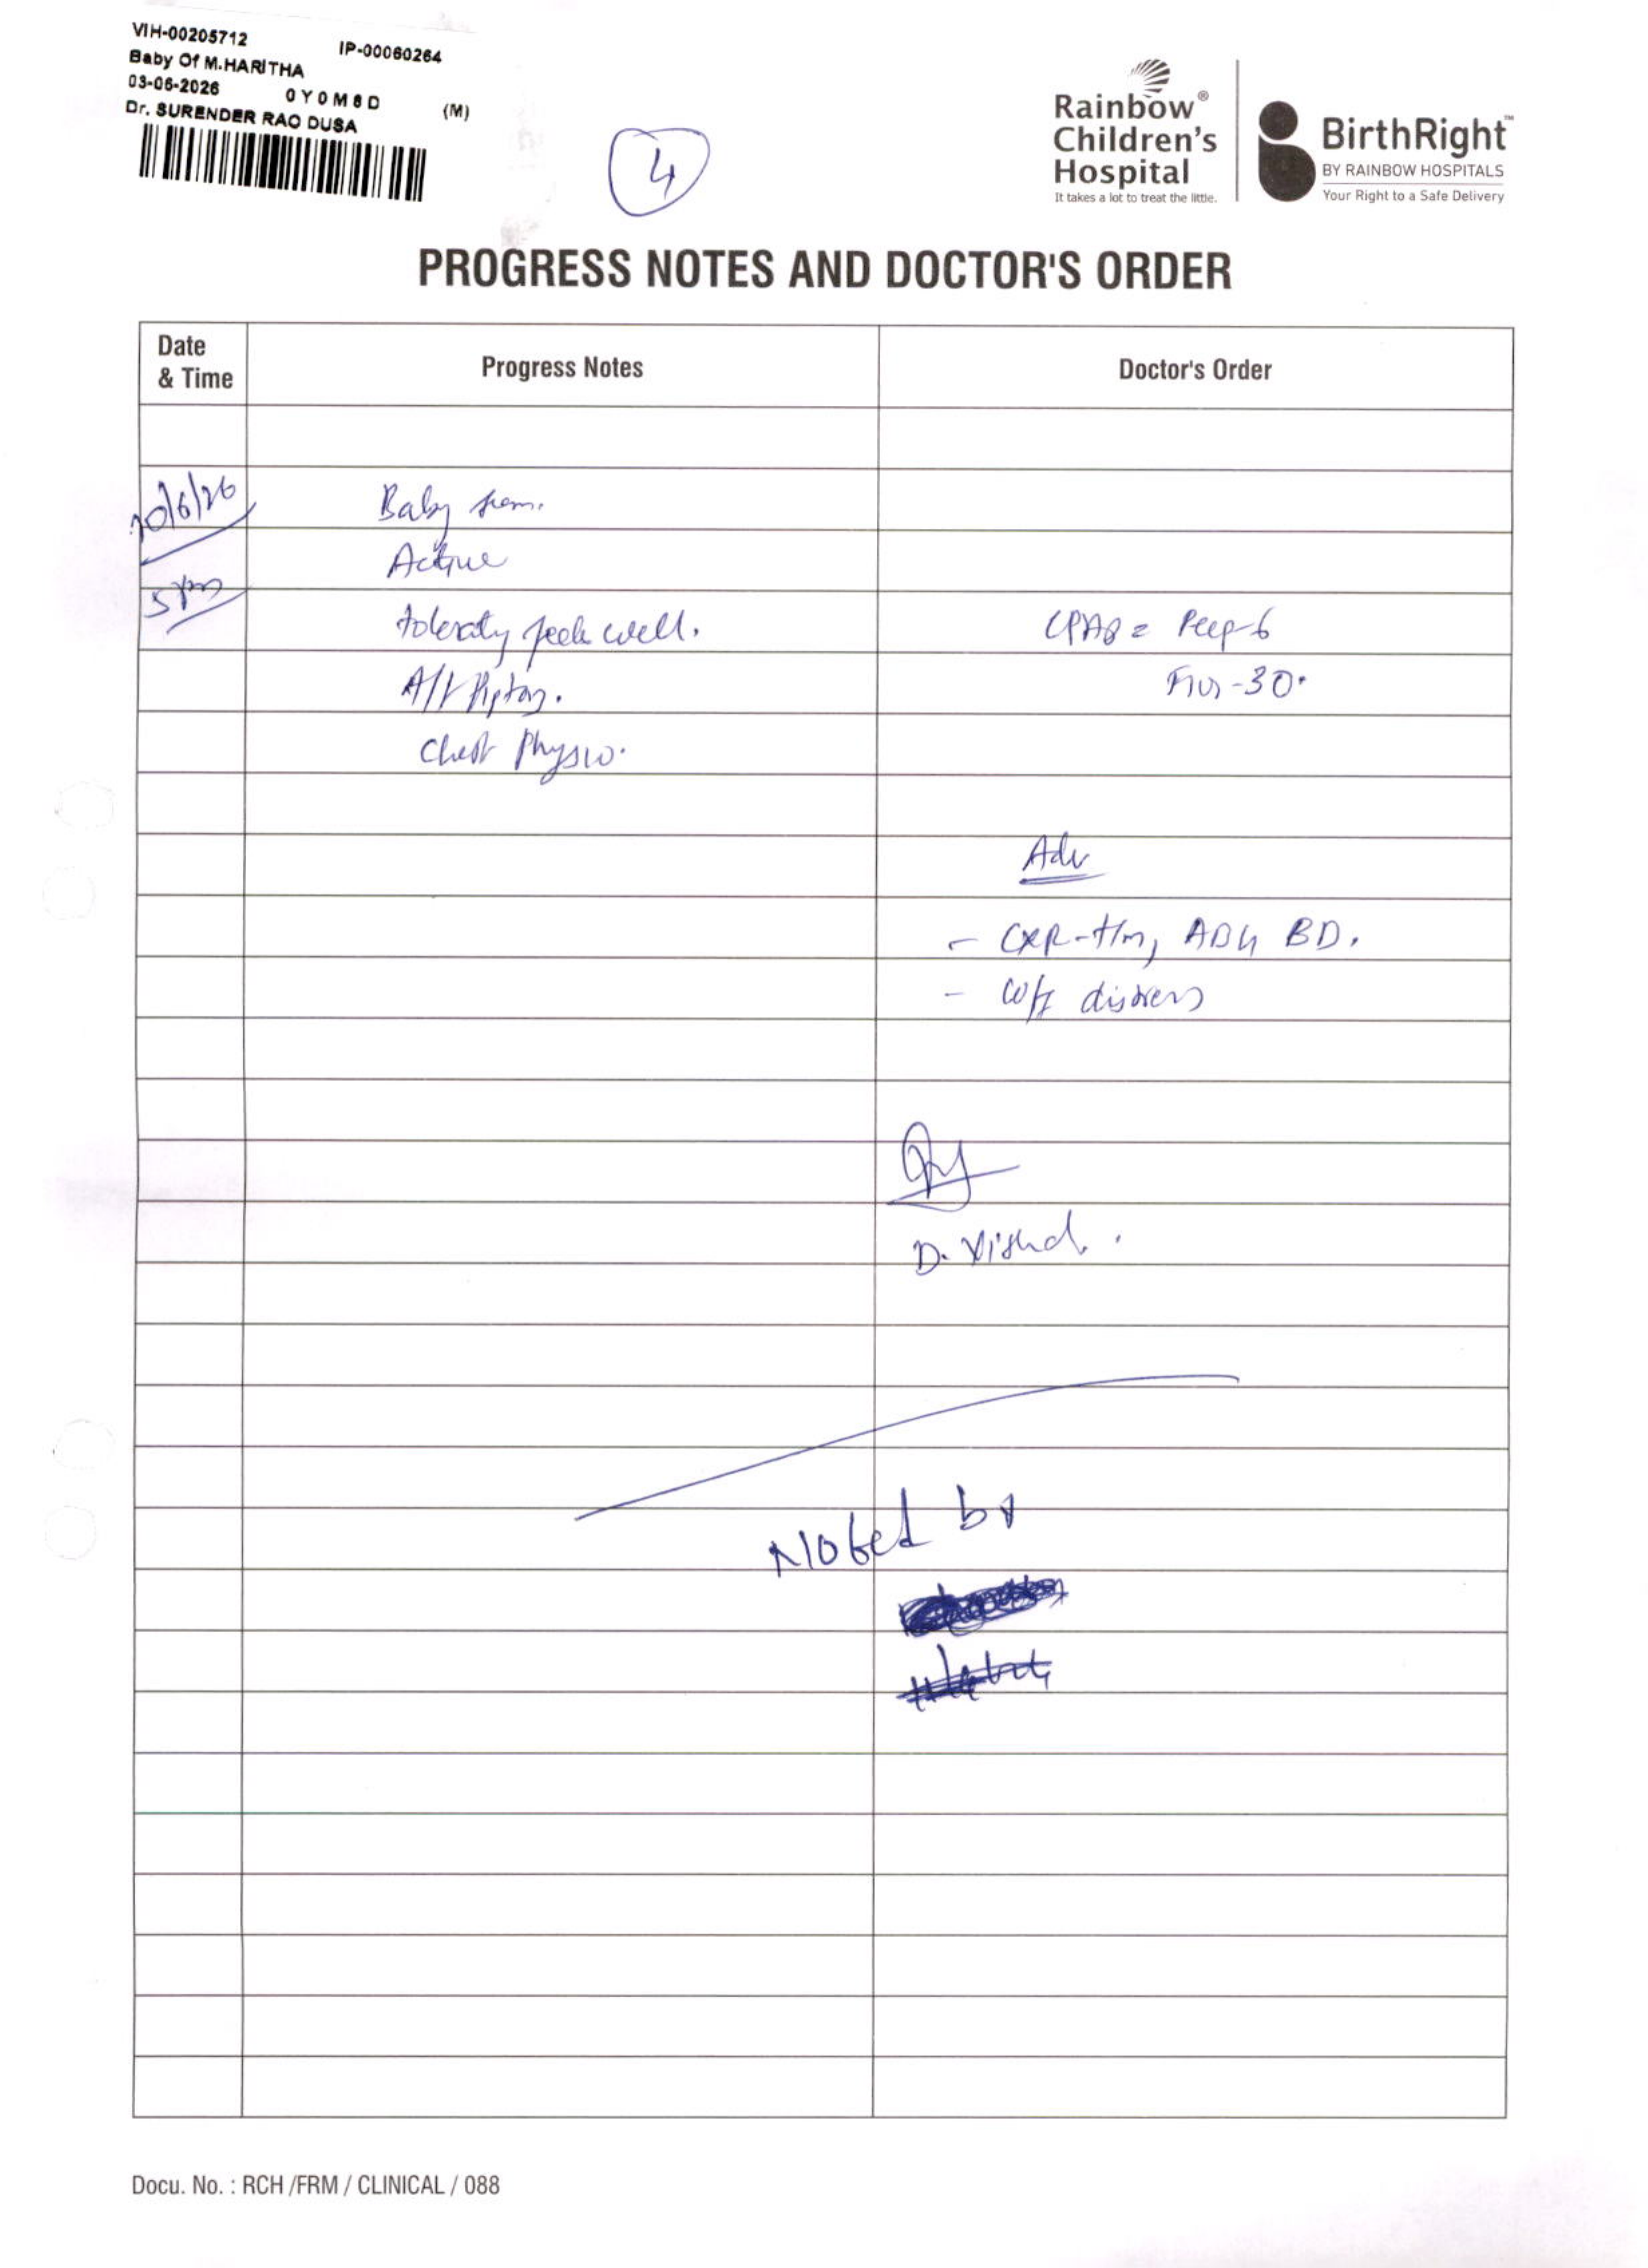 VIH-00205712 IP-00060264
Baby Of M.HARITHA
03-06-2026 0Y0M8D (M)
Dr. SURENDER RAO DUSA
4
Rainbow®
Children's
Hospital
It takes a lot to treat the little.
BirthRight™
BY RAINBOW HOSPITALS
Your Right to a Safe Delivery
PROGRESS NOTES AND DOCTOR'S ORDER
Date
& Time
Progress Notes
Doctor's Order
10/6/26
Baby
Active
5pm
well.
CPAP = Peep-6
-30.
Chest Physio.
Adv
- CXR - t/m, ABG BD.
- W/f distress
D. Vishal.
Noted by
Docu. No. : RCH /FRM / CLINICAL / 088